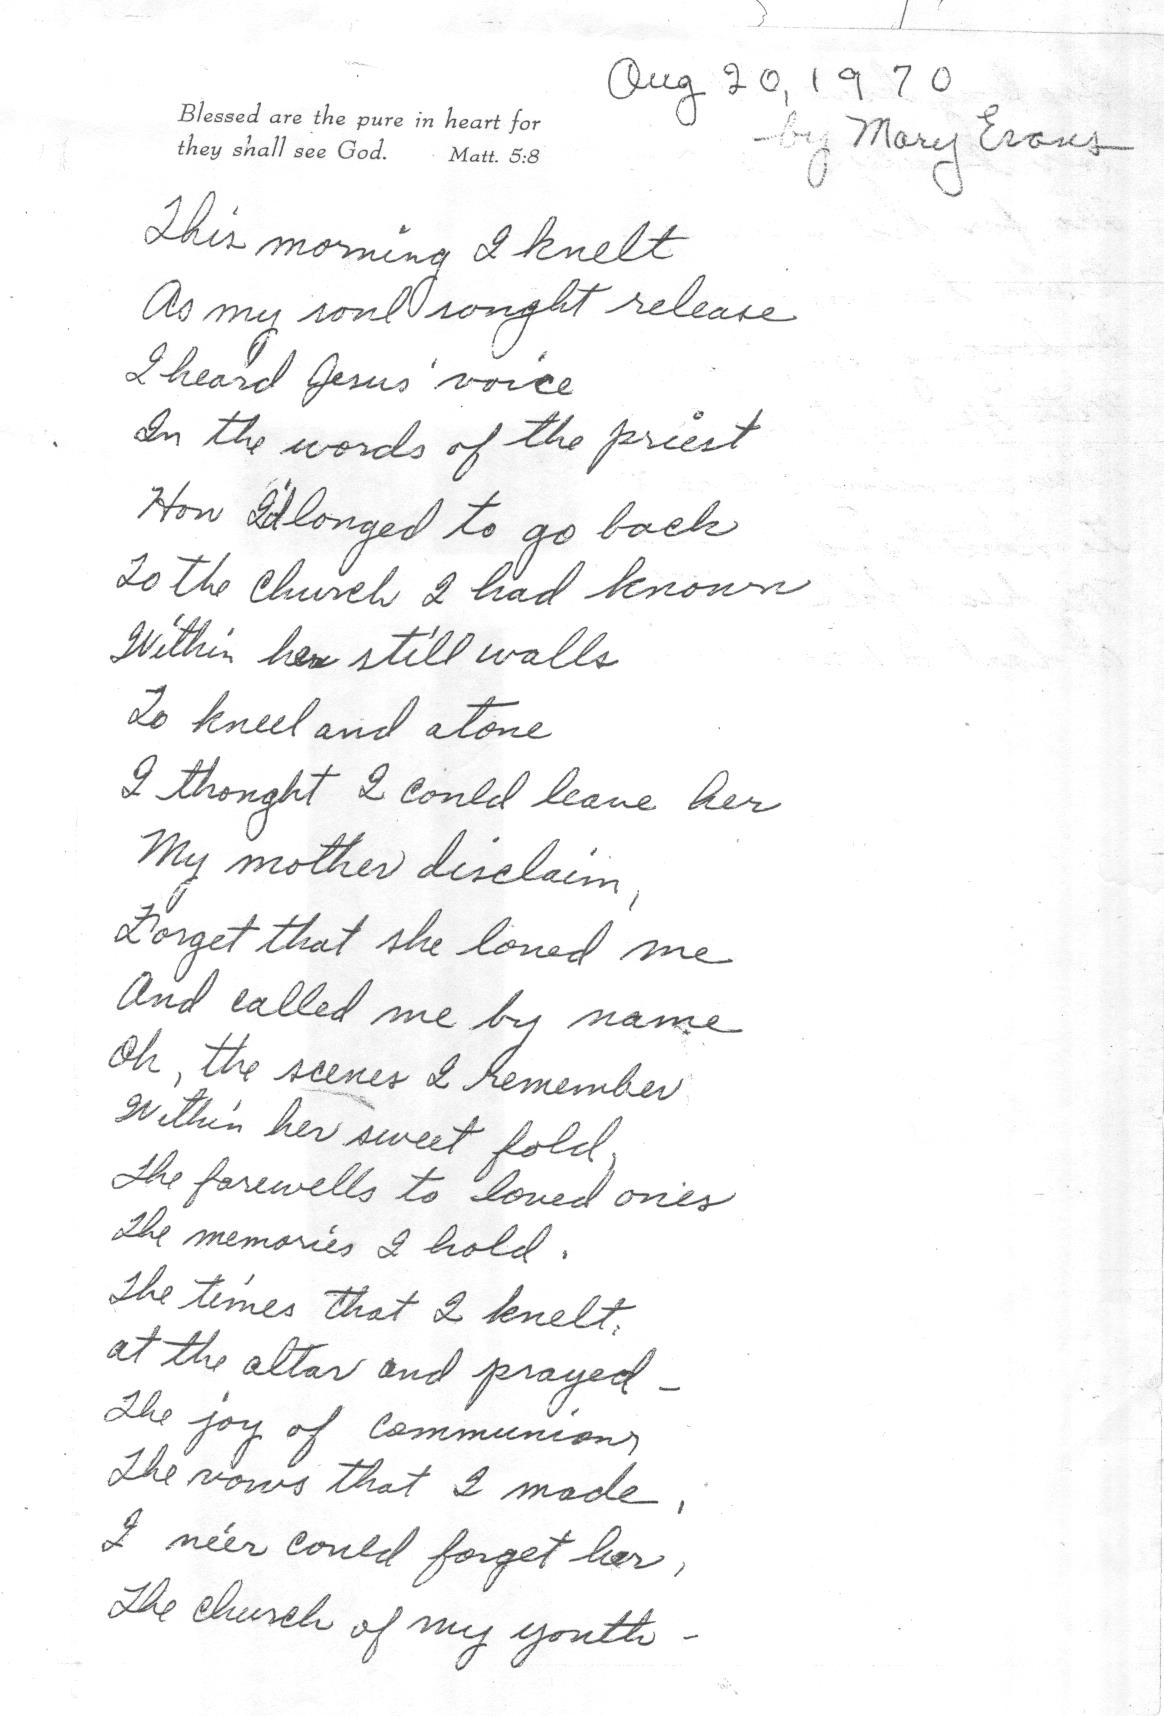 Aug 20, 1970
by Mary Evans
Blessed are the pure in heart for
they shall see God. Matt. 5:8
This morning I knelt
As my soul sought release
I heard Jesus' voice
In the words of the priest
How I'd longed to go back
To the church I had known
Within her still walls
To kneel and atone
I thought I could leave her
My mother disclaim,
Forget that she loved me
And called me by name
Oh, the scenes I remember
Within her sweet fold,
The farewells to loved ones
The memories I hold.
The times that I knelt,
at the altar and prayed -
The joy of communion,
The vows that I made,
I ne'er could forget her,
The church of my youth -